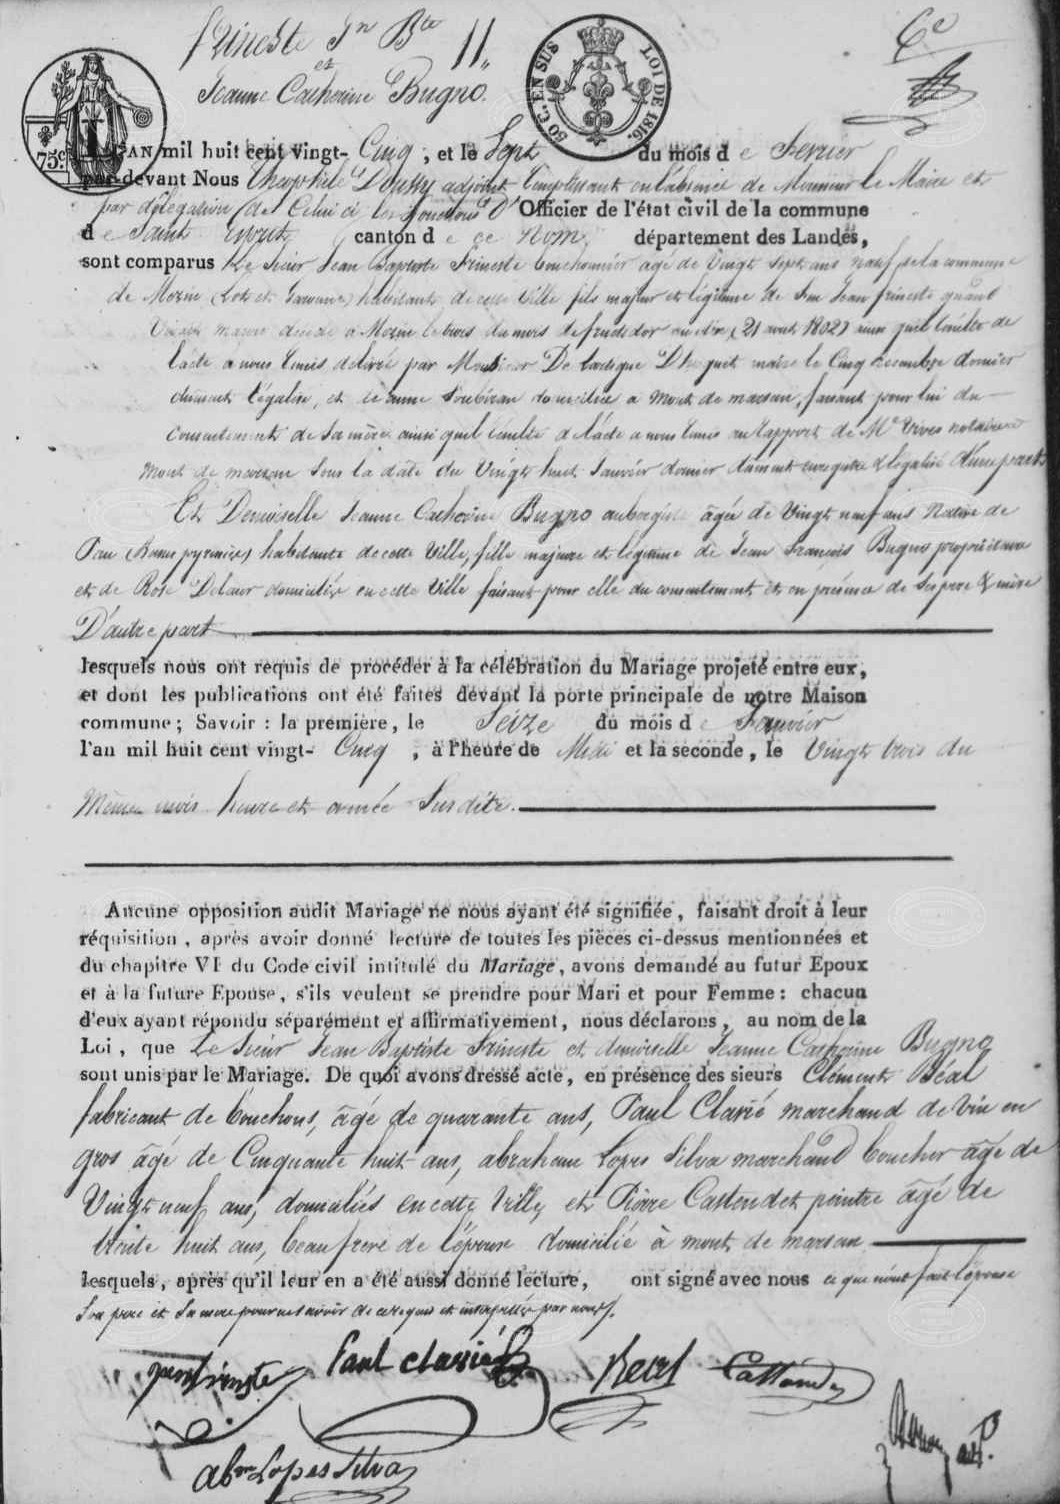 frineste Jn Bte 11.
et
Jeanne Catherine Bugno.
6e
75c.
50 C. EN SUS LOI DE 1816.
L'AN mil huit cent vingt- Cinq, et le Sept du mois de fevrier
par-devant Nous Theophile adjoint remplissant en l'absence de Monsieur le Maire et
par délégation de Celui ci les fonctions D'Officier de l'état civil de la commune
de Saint esprit, canton de ce nom, département des Landes,
sont comparus Le Sieur Jean Baptiste frineste bouchonnier agé de Vingt sept ans natif de la commune
de Mezin (Lot et Garonne) habitant de cette Ville fils majeur et légitime de feu Jean frineste quand
Vivait decedé a Mezin le trois du mois de fructidor an dix (21 aout 1802) ainsi quil resulte de
l'acte a nous remis delivré par Monsieur maire le Cinq decembre dernier
dument légalisé, et de domiciliée a Mont de marsan, faisant pour lui du
Consentement de Sa mère ainsi quil résulte de l'acte a nous remis au rapport de Me Vives notaire
Mont de marsan sous la date du Vingt huit Janvier dernier dument enregistré & legalisé d'une part.
Et Demoiselle Jeanne Catherine Bugno aubergiste âgée de Vingt neuf ans Native de
Pau (Basses pyrenées) habitante de cette Ville, fille majeure et légitime de Jean François Bugno propriétaire
et de Rose domiciliés en cette Ville faisant pour elle du consentement et en présence de ses pere & mère
D'autre part
lesquels nous ont requis de procéder à la célébration du Mariage projeté entre eux,
et dont les publications ont été faites devant la porte principale de notre Maison
commune; Savoir : la première, le Seize du mois de Janvier
l'an mil huit cent vingt- Cinq, à l'heure de Midi et la seconde, le Vingt trois du
Même mois heure et année Susdite.
Aucune opposition audit Mariage ne nous ayant été signifiée, faisant droit à leur
réquisition, après avoir donné lecture de toutes les pièces ci-dessus mentionnées et
du chapitre VI du Code civil intitulé du Mariage, avons demandé au futur Epoux
et à la future Epouse, s'ils veulent se prendre pour Mari et pour Femme : chacun
d'eux ayant répondu séparément et affirmativement, nous déclarons, au nom de la
Loi, que Le Sieur Jean Baptiste frineste et demoiselle Jeanne Catherine Bugno
sont unis par le Mariage. De quoi avons dressé acte, en présence des sieurs Clément Béal
fabricant de bouchons, âgé de quarante ans, Paul Clavié marchand de vin en
gros âgé de Cinquante huit ans, abraham Lopes Silva marchand boucher âgé de
Vingt neuf ans, domiciliés en cette Ville, et Pierre Castendet peintre âgé de
trente huit ans, beau frere de l'épouse domicilié à mont de marsan
lesquels, après qu'il leur en a été aussi donné lecture, ont signé avec nous ce que n'ont fait l'épouse
Son pere et Sa mere pour ne savoir de ce requis et interpellés par nous.
Jean frineste Paul clavié Beal Castendet
abm Lopes Silva adt.